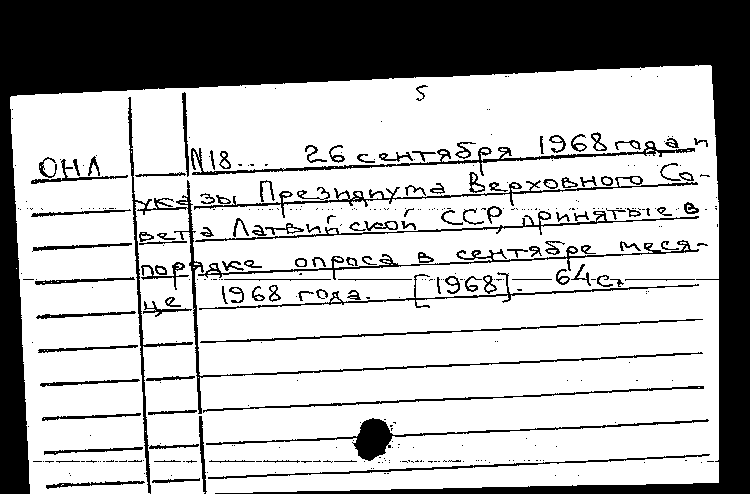 5
ОНЛ N18... 26 сентября 1968 года и
указы Президиума Верховного Со-
вета Латвийской ССР, принятые в
порядке опроса в сентябре меся-
це 1968 года. [1968]. 64 с.